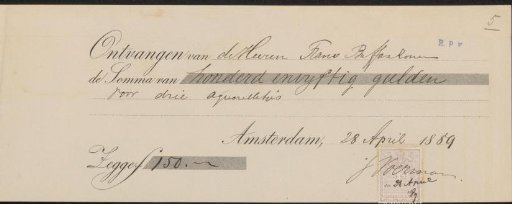 5
Ontvangen van de Heeren Frans Buffa & Zonen
de Somma van honderd envyftig gulden
voor drie aquarelletjes
Amsterdam, 28 April 1889
Zegge f 150.—
J Voerman
28 April
89